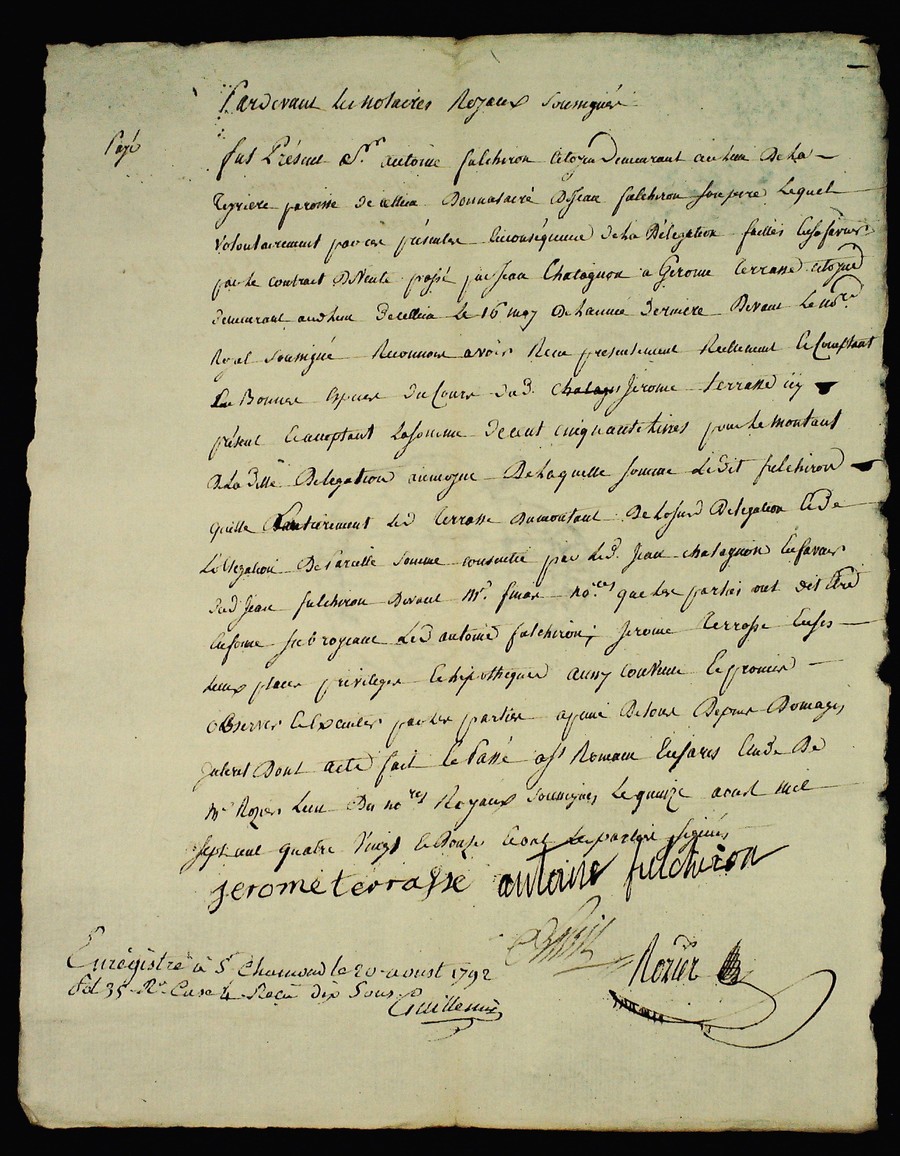 Pardevant les notaires Royaux soussignés
Payé
fut Présent Sr. antoine fulchiron citoyen demeurant au lieu De la
paroisse de Donnataire De Jean fulchiron son pere Lequel
volontairement par ces présentes En conséquence de la Délégation faittes En sa faveur
par le contrat De Vente passé par Jean Chatagnon a Gerome terrasse citoyen
demeurant audit lieu le 16 may De Lannée Derniere Devant Le nore
Royal soussigné Reconnois avoir Receu presentement Reellement Et Comptant
En Bonnes Espèces du Cours dud. Jerome terrasse icy
présent Et acceptant La somme de cent cinquante livres pour Le montant
De La dtte Delegation au moyen De laquelle somme Ledit fulchiron
quitte Entierement Led terrasse Du montant De La susd Delegation Et de
L'obligation De Pareille somme consentie par Led. Jean chatagnon En faveur
dud Jean fulchiron Devant Mr. finas nore que Les parties ont dit Etre
subrogeant Led antoine fulchiron; Jerome terrasse En ses
lieux place privileges Et hipotheques ainsy convenu Et promis
observer Et Executer par Les parties a peine De tous Depens Domages
Interet Dont acte fait Et Passé a St Romain En Jares Etude De
Mr Rozier L'un Des nores Royaux soussignés Le quinze aoust mil
sept cent quatre Vingt Et Douze Et ont Les parties signées
jerome terrasse antoine fulchiron
Rozier
Enregistré à St Chamond le 20 aoust 1792
fol 35 Ro. Case 4 Reçu dix Sous
Guillemin